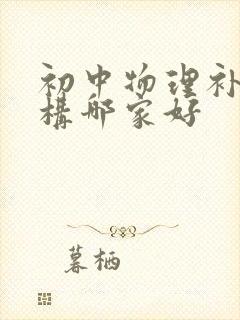 初中物理补
構哪家好
暮栖